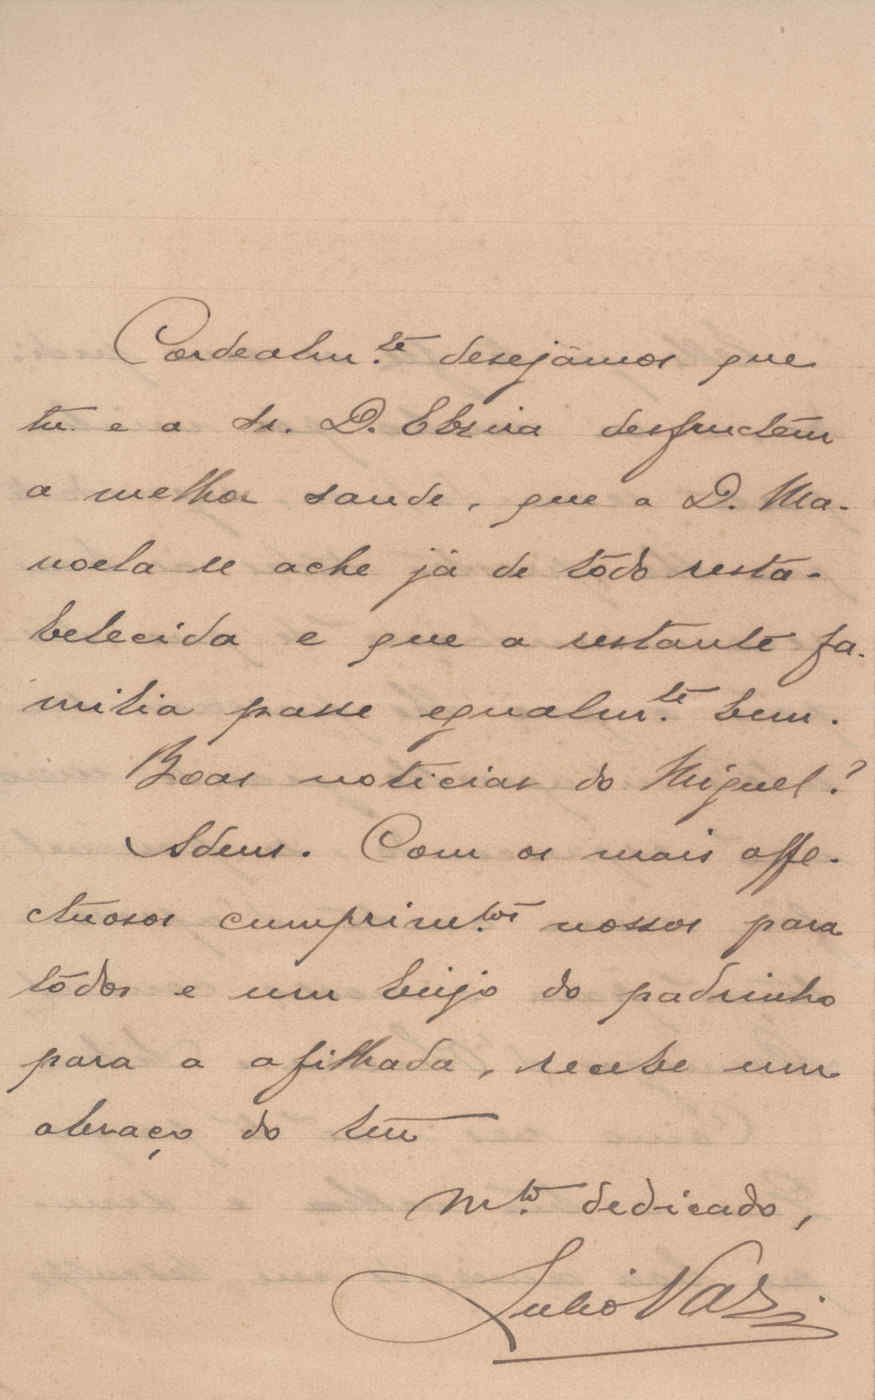 Cordealm.te desejâmos que
tu e a Sr. D. Elzira desfructem
a melhor saude, que a D. Ma-
noela se ache já de tôdo resta-
belecida e que a restante fa-
milia passe egualm.te bem.
Boas noticias do Miguel?
Adeus. Com os mais affe-
ctuosos cumprim.tos nossos para
tôdos e um beijo do padrinho
para a afilhada, recebe um
abraço do teu
M.to dedicado,
Julio Vaz